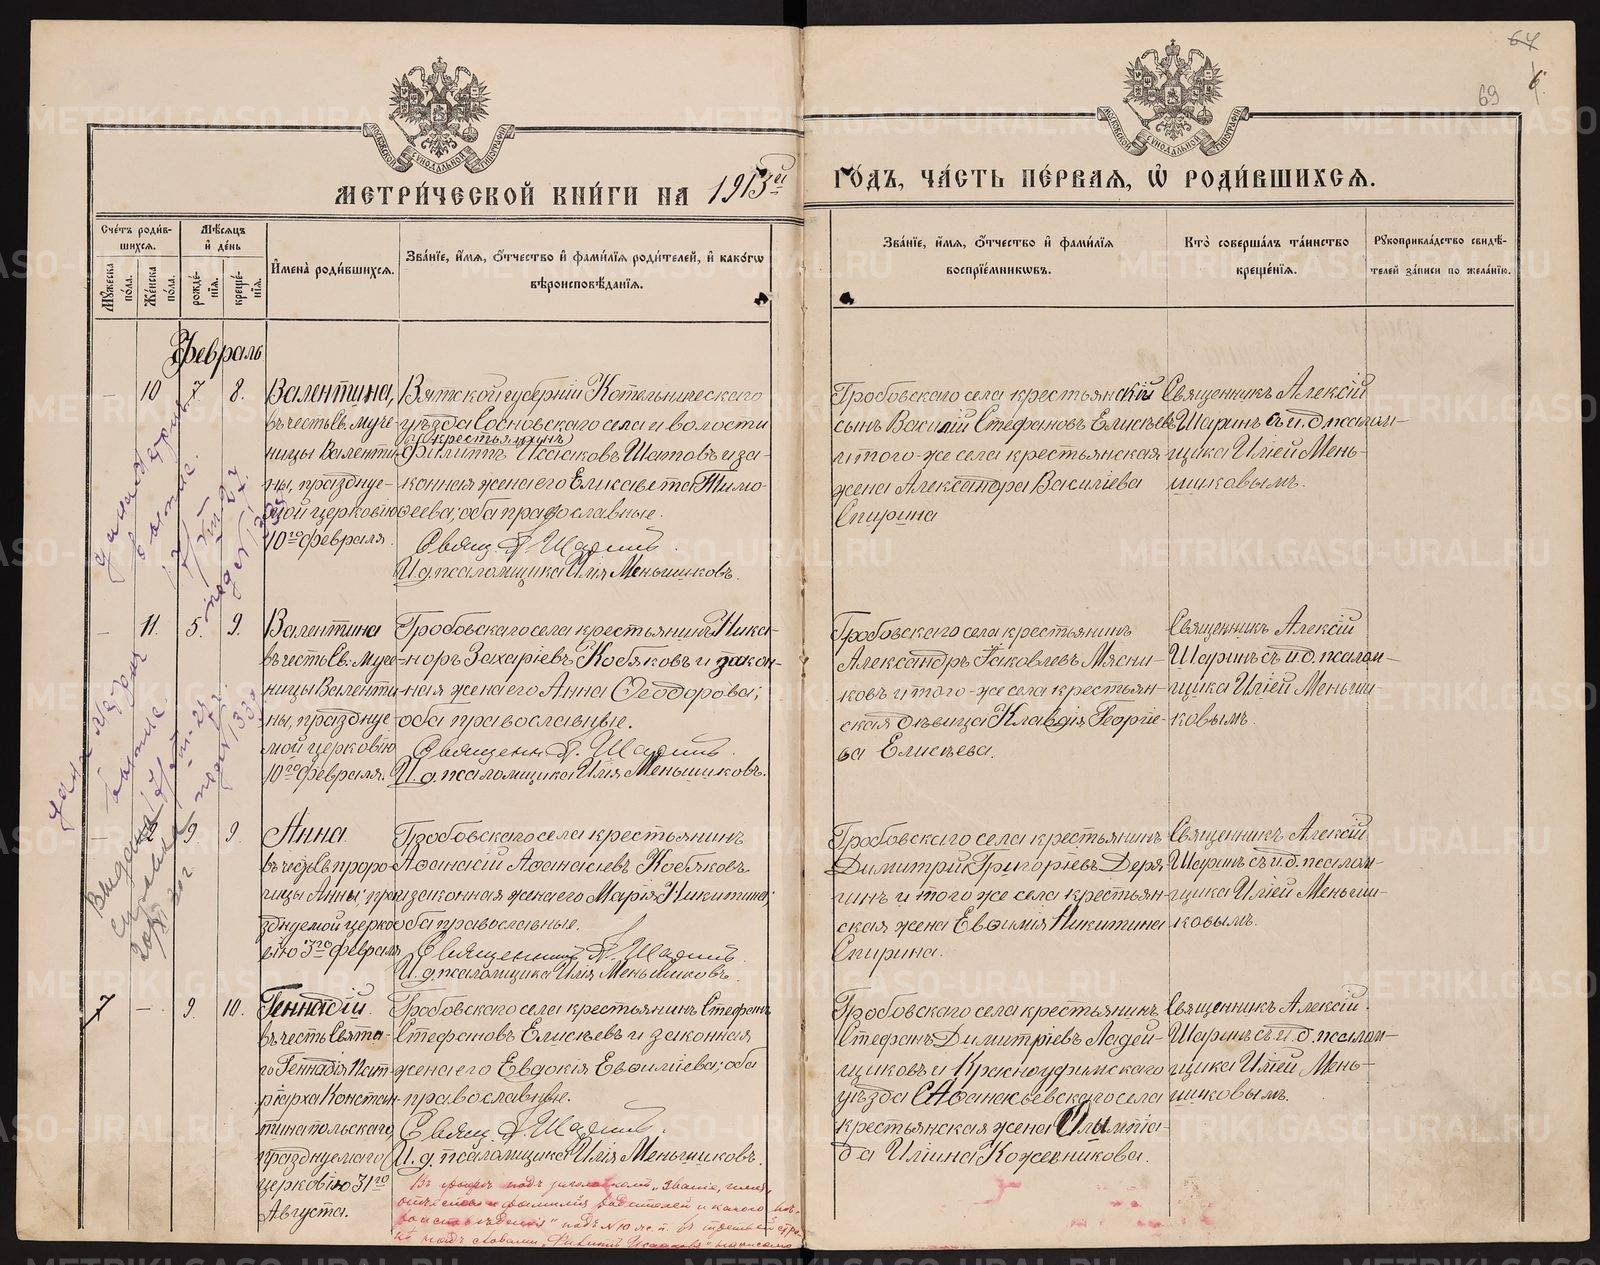 64
69
МЕТРИ́ЧЕСКОЙ КНИ́ГИ НА 1913ый ГО́ДЪ, ЧА́СТЬ ПЕ́РВАЯ, Ѡ҆ РОДИ́ВШИХСЯ.
Сче́тъ роди́вшихся.
Мꙋ́жеска по́ла.
Же́нска по́ла.
Мѣ́сяцъ и҆ де́нь
рожде́нїя.
креще́нїя.
И҆мена̀ роди́вшихся.
Зва́нїе, и҆́мя, ѻ҆́тчество и҆ фами́лїя роди́телей, и҆ како́гѡ
вѣроисповѣ́данїя.
Зва́нїе, и҆́мя, ѻ҆́тчество и҆ фами́лїя
воспрїе́мникѡвъ.
Кто̀ соверша́лъ та́инство
креще́нїя.
Рꙋкоприкла́дство свидѣ́-
телей за́писи по жела́нїю.
Февраль
- 10 7 8.
Валентина,
въ честь Св. муче-
ницы Валенти-
ны, праздуе-
мой церковію
10го февраля.
Вятской губерніи Котельническаго
уѣзда Сосновскаго села и волости
(крестьянинъ)
Филиппъ Исааковъ Шатовъ и за-
конная жена его Елисавета Тимо-
феева; оба православные.
Свящ. А. Шаринъ.
И. д. псаломщика Илія Меньшиковъ.
Гробовскаго села крестьянскій
сынъ Василій Стефановъ Елисѣевъ
и того-же села крестьянская
жена Александра Василіева
Спирина
Священникъ Алексій
Шаринъ съ и. д. псалом-
щика Иліей Мень-
шиковымъ.
- 11. 5. 9.
Валентина
въ честь Св. муче-
ницы Валенти-
ны, праздуе
мой церковію
10го февраля.
Гробовскаго села крестьянинъ Ника-
норъ Захаріевъ Кобяковъ и закон-
ная жена его Анна Ѳеодорова;
оба православные.
Священн. А. Шаринъ.
И. д. псаломщика Илія Меньшиковъ.
Гробовскаго села крестьянинъ
Александръ Іаковлевъ Мясни-
ковъ и того-же села крестьян-
ская дѣвица Клавдія Георгіе-
ва Елисѣева.
Священникъ Алексій
Шаринъ съ и. д. псалом-
щика Иліей Меньши-
ковымъ.
- 9 9.
Анна
въ честь Св. проро-
чицы Анны, пра-
зднуемой церко-
вію 3го февраля
Гробовскаго села крестьянинъ
Аѳанасій Аѳанасіевъ Кобяковъ
и законная жена его Марія Никитина;
оба православные.
Священникъ А. Шаринъ.
И. д. псаломщика Илія Меньшиковъ.
Гробовскаго села крестьянинъ
Димитрій Григоріевъ Деря-
гинъ и того же села крестьян-
ская жена Евѳимія Никитина
Спирина.
Священникъ Алексій
Шаринъ съ и. д. псалом-
щика Иліей Меньши-
ковымъ.
7 - 9. 10.
Геннадій
въ честь Свята-
го Геннадія Пат-
ріарха Констан-
тинапольскаго,
празднуемаго
церковію 31го
Августа.
Гробовскаго села крестьянинъ Стефанъ
Стефановъ Елисѣевъ и законная
жена его Евдокія Евѳиміева; оба
православные.
Свящ. А. Шаринъ.
И. д. псаломщика Илія Меньшиковъ.
Гробовскаго села крестьянинъ
Стефанъ Димитріевъ Ладей-
щиковъ и Красноуфимскаго
уѣзда Аѳанасьевскаго села
крестьянская жена Олимпіа-
да Иліина Кожевникова.
Священникъ Алексій
Шаринъ съ и. д. псалом-
щика Иліей Мень-
шиковымъ.
Въ графѣ подъ заголовкомъ „Званіе, имя,
отчество и фамилія родителей и какого вѣ-
роисповѣданія" подъ № 10 ж. п. въ третьей стро-
кѣ надъ словами „Филиппъ Исааковъ" написано
METRIKI.GASO-URAL.RU